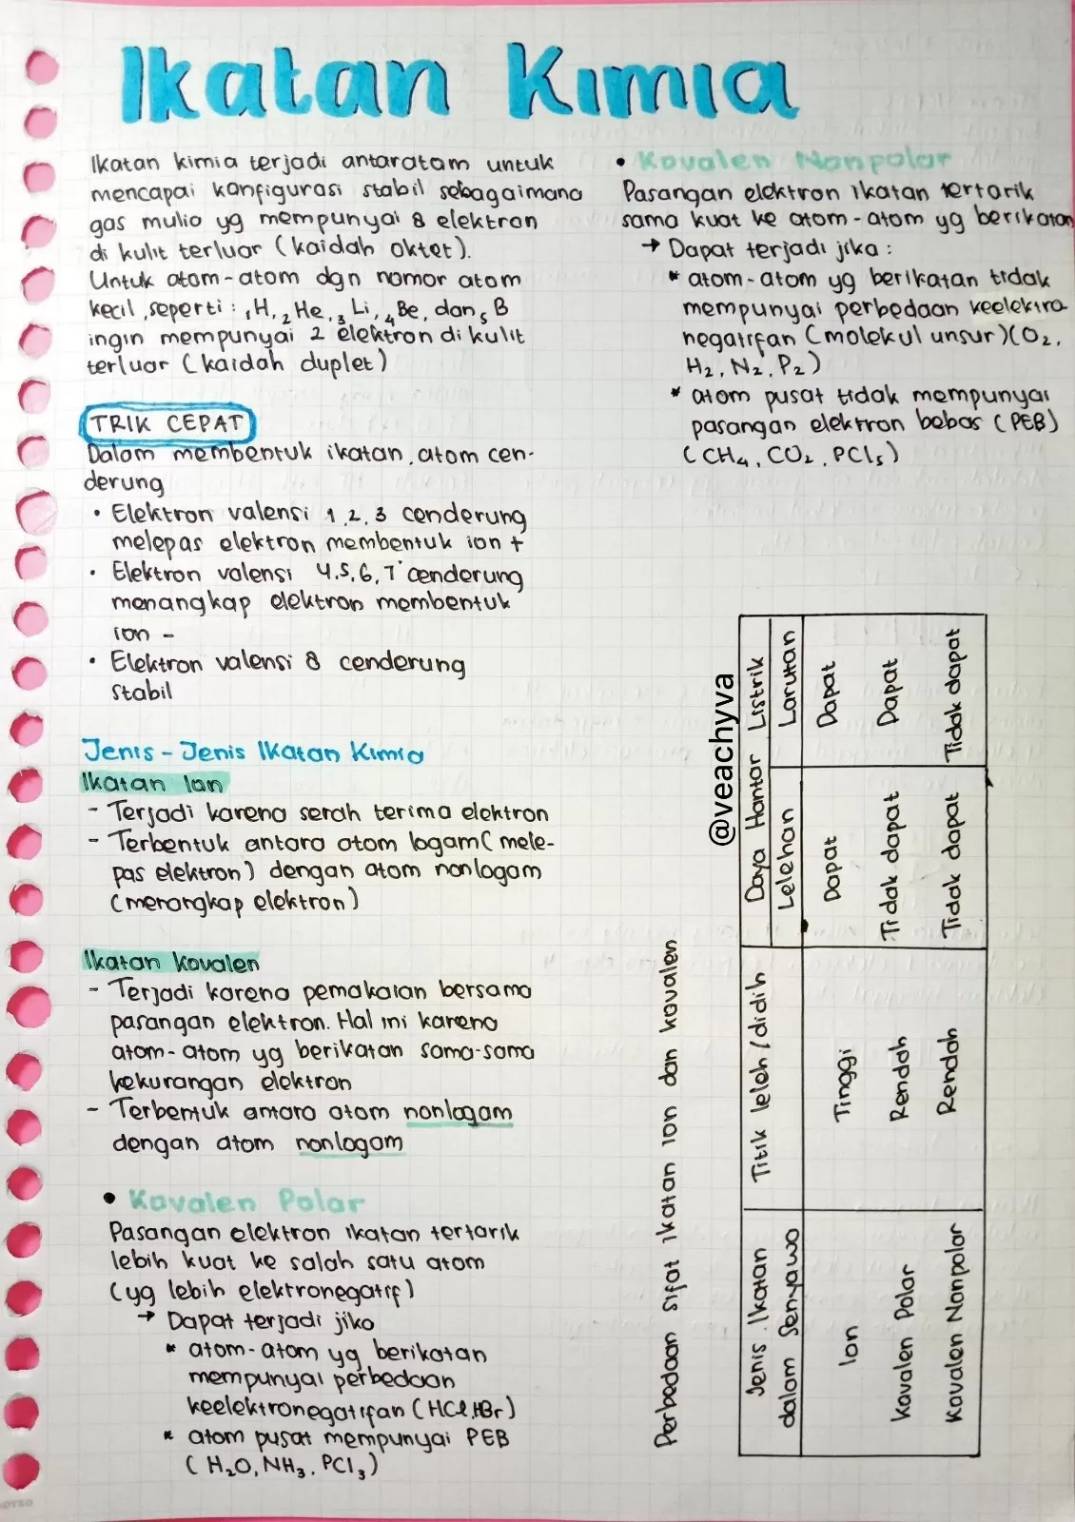 Ikatan Kimia
Ikatan kimia terjadi antaratom untuk
mencapai konfigurasi stabil sebagaimana
gas mulia yg mempunyai 8 elektron
di kulit terluar (kaidah oktet).
Untuk atom-atom dgn nomor atom
kecil, seperti : ₁H, ₂He, ₃Li, ₄Be, dan ₅B
ingin mempunyai 2 elektron di kulit
terluar (kaidah duplet)
TRIK CEPAT
Dalam membentuk ikatan, atom cen-
derung
• Elektron valensi 1, 2, 3 cenderung
melepas elektron membentuk ion +
• Elektron valensi 4, 5, 6, 7 cenderung
menangkap elektron membentuk
ion -
• Elektron valensi 8 cenderung
stabil
Jenis-Jenis Ikatan Kimia
Ikatan Ion
- Terjadi karena serah terima elektron
- Terbentuk antara atom logam (mele-
pas elektron) dengan atom nonlogam
(menangkap elektron)
Ikatan Kovalen
- Terjadi karena pemakaian bersama
pasangan elektron. Hal ini karena
atom-atom yg berikatan sama-sama
kekurangan elektron
- Terbentuk antara atom nonlogam
dengan atom nonlogam
• Kovalen Polar
Pasangan elektron ikatan tertarik
lebih kuat ke salah satu atom
(yg lebih elektronegatif)
→ Dapat terjadi jika
* atom-atom yg berikatan
mempunyai perbedaan
keelektronegatifan (HCl, HBr)
* atom pusat mempunyai PEB
(H₂O, NH₃, PCl₃)
• Kovalen Nonpolar
Pasangan elektron ikatan tertarik
sama kuat ke atom-atom yg berikatan
→ Dapat terjadi jika :
* atom-atom yg berikatan tidak
mempunyai perbedaan keelektro
negatifan (molekul unsur) (O₂,
H₂, N₂, P₂)
* atom pusat tidak mempunyai
pasangan elektron bebas (PEB)
(CH₄, CO₂, PCl₅)
@veachyva
Perbedaan sifat ikatan ion dan kovalen
Jenis Ikatan dalam Senyawa Titik leleh/didih Daya Hantar Listrik
Lelehan Larutan
Ion Tinggi Dapat Dapat
Kovalen Polar Rendah Tidak dapat Dapat
Kovalen Nonpolar Rendah Tidak dapat Tidak dapat